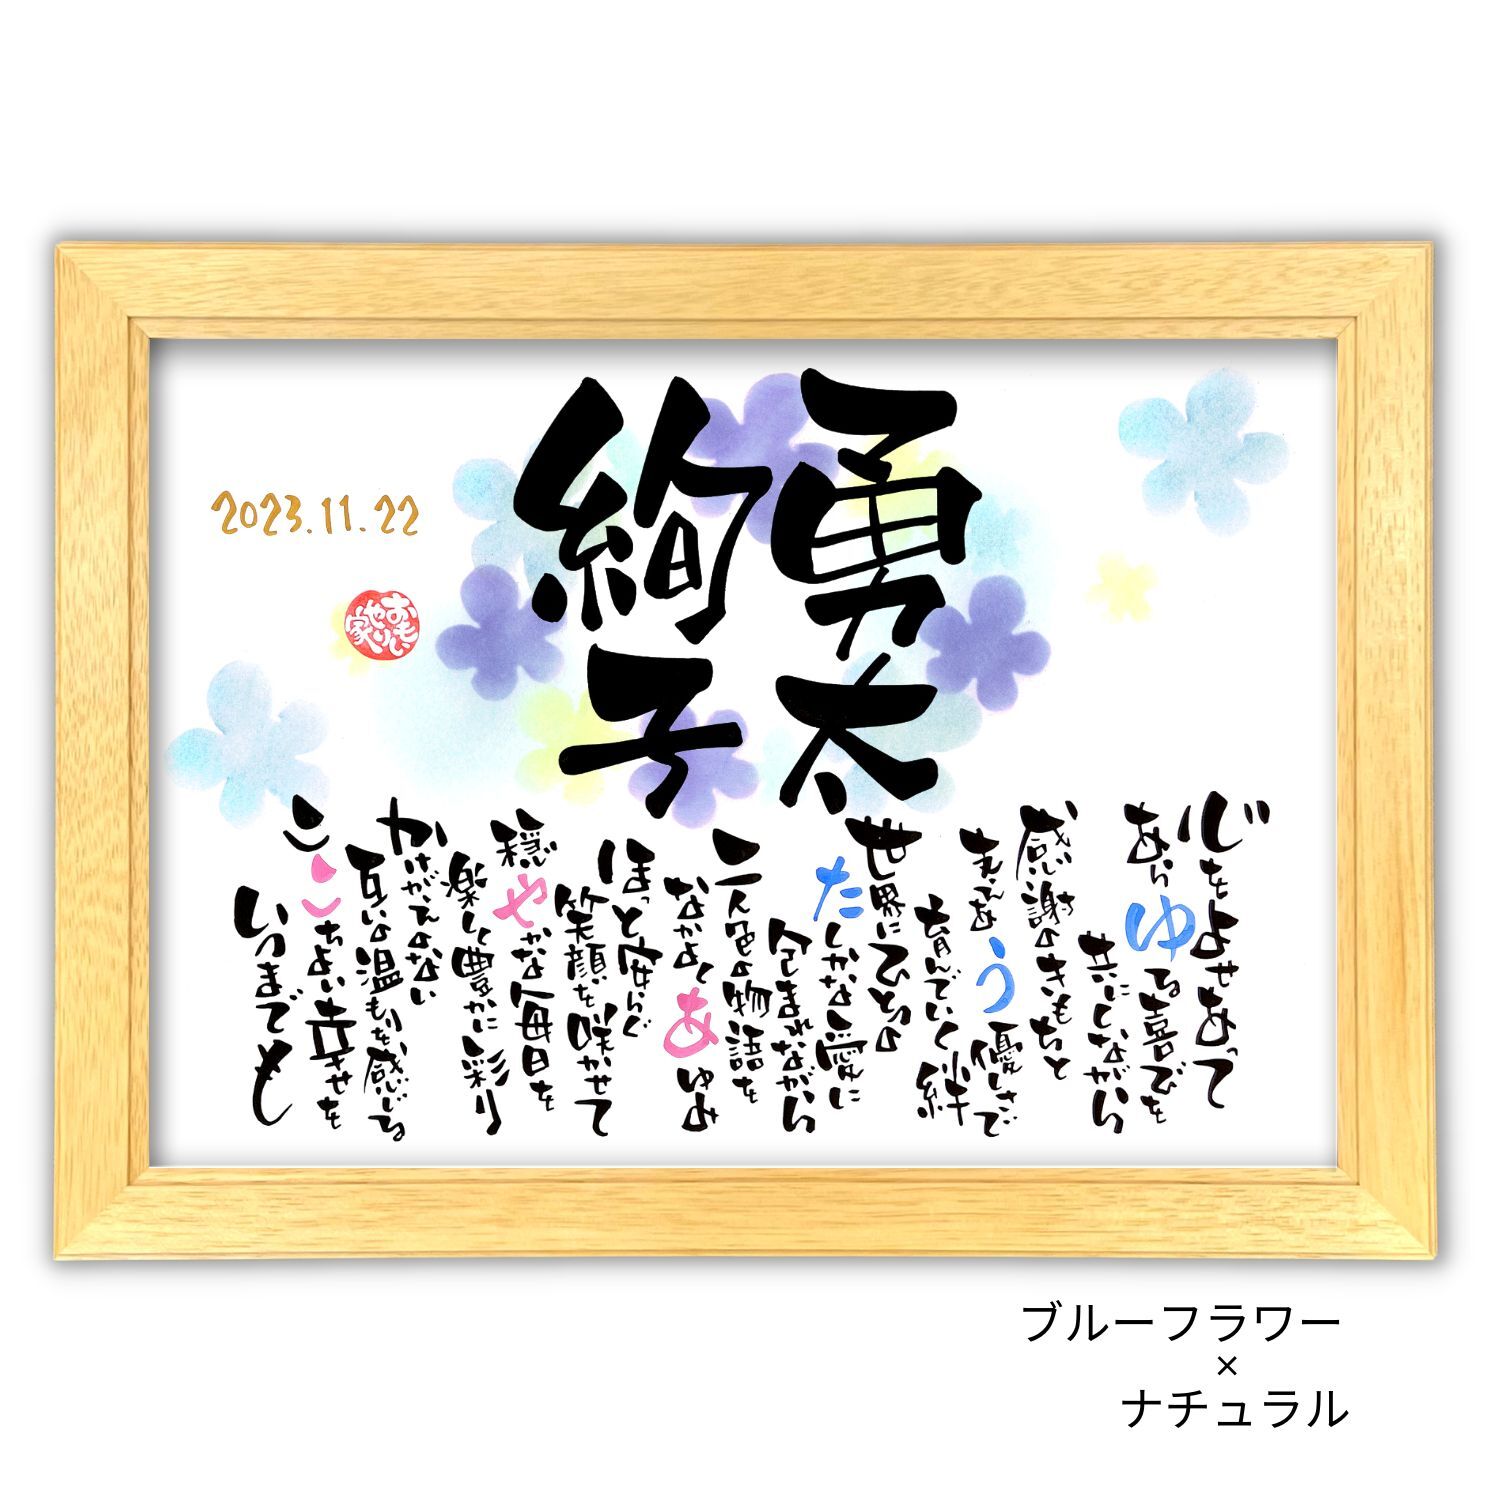 勇太
絢子
心をよせあって
あらゆる喜びを
共にしながら
感謝のきもちと
まえむ う優しさで
育んでいく絆
世界にひとつの
たしかな愛に
包まれながら
二人色の物語を
なかよくあゆみ
ほっと安らぐ
笑顔を咲かせて
穏やかな毎日を
楽しく豊かに彩り
かけがえのない
互いの温もりを感じる
ここちよい幸せを
いつまでも
2023.11.22
おもいやり家
ブルーフラワー
×
ナチュラル